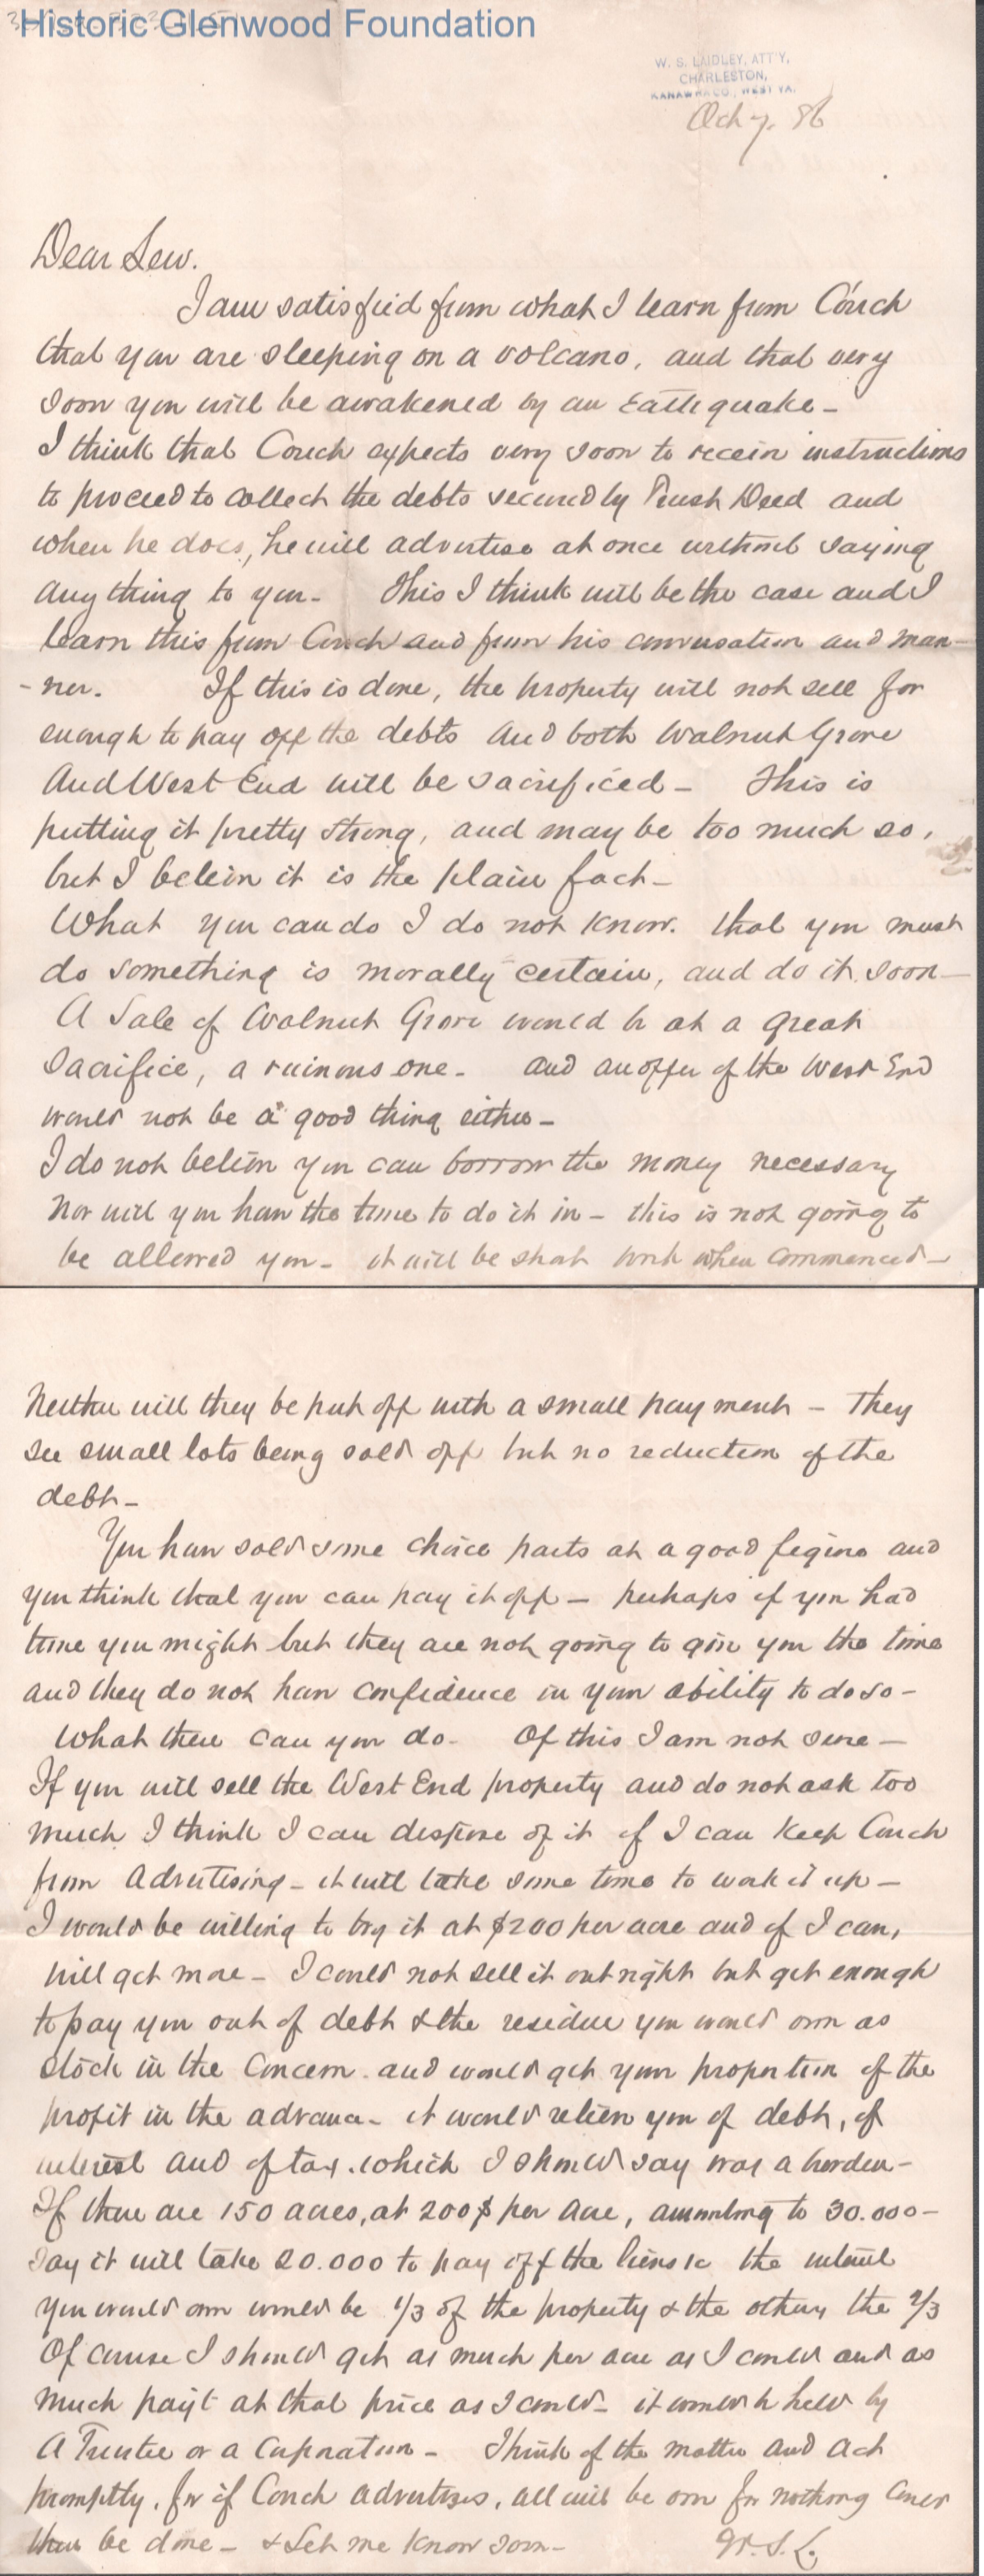 Historic Glenwood Foundation
W. S. LAIDLEY, ATT'Y,
CHARLESTON,
KANAWHA CO., WEST VA.
Oct 7. 86
Dear Lew.
I am satisfied from what I learn from Couch
that you are sleeping on a volcano, and that very
soon you will be awakened by an Eathquake -
I think that Couch expects very soon to receive instructions
to proceed to collect the debts secured by Trust Deed and
when he does, he will advertise at once without saying
any thing to you - This I think will be the case and I
learn this from Couch and from his conversation and man-
-ner. If this is done, the property will not sell for
enough to pay off the debts and both Walnut Grove
And West End will be sacrificed - This is
putting it pretty strong, and may be too much so,
but I believe it is the plain fact -
What you can do I do not know. that you must
do something is morally certain, and do it soon -
A Sale of Walnut Grove would be at a great
Sacrifice, a ruinous one - and an offer of the West End
would not be a good thing either -
I do not believe you can borrow the money necessary
nor will you have the time to do it in - this is not going to
be allowed you - it will be short work when commenced -
Neither will they be put off with a small payment - They
see small lots being sold off but no reduction of the
debt -
You have sold some choice parts at a good figure and
you think that you can pay it off - perhaps if you had
time you might but they are not going to give you the time
and they do not have confidence in your ability to do so -
What then can you do - Of this I am not sure -
If you will sell the West End property and do not ask too
much I think I can dispose of it if I can keep Couch
from Advertising - it will take some time to work it up -
I would be willing to try it at $200 per acre and if I can,
will get more - I could not sell it outright but get enough
to pay you out of debt & the residue you would own as
stock in the concern and would get your proportion of the
profit in the advance - it would relieve you of debt, of
interest and of tax which I should say was a burden -
If there are 150 acres, at 200$ per acre, amounting to 30.000 -
Say it will take 20.000 to pay off the liens &c the interest
you would own would be 1/3 of the property & the others the 2/3
Of course I should get as much per acre as I could and as
much pay't at that price as I could - it would be held by
A Trustee or a Corporation - Think of the matter and act
promptly, for if Couch advertises, all will be over for nothing could
then be done - & Let me know soon -
W. S. L.